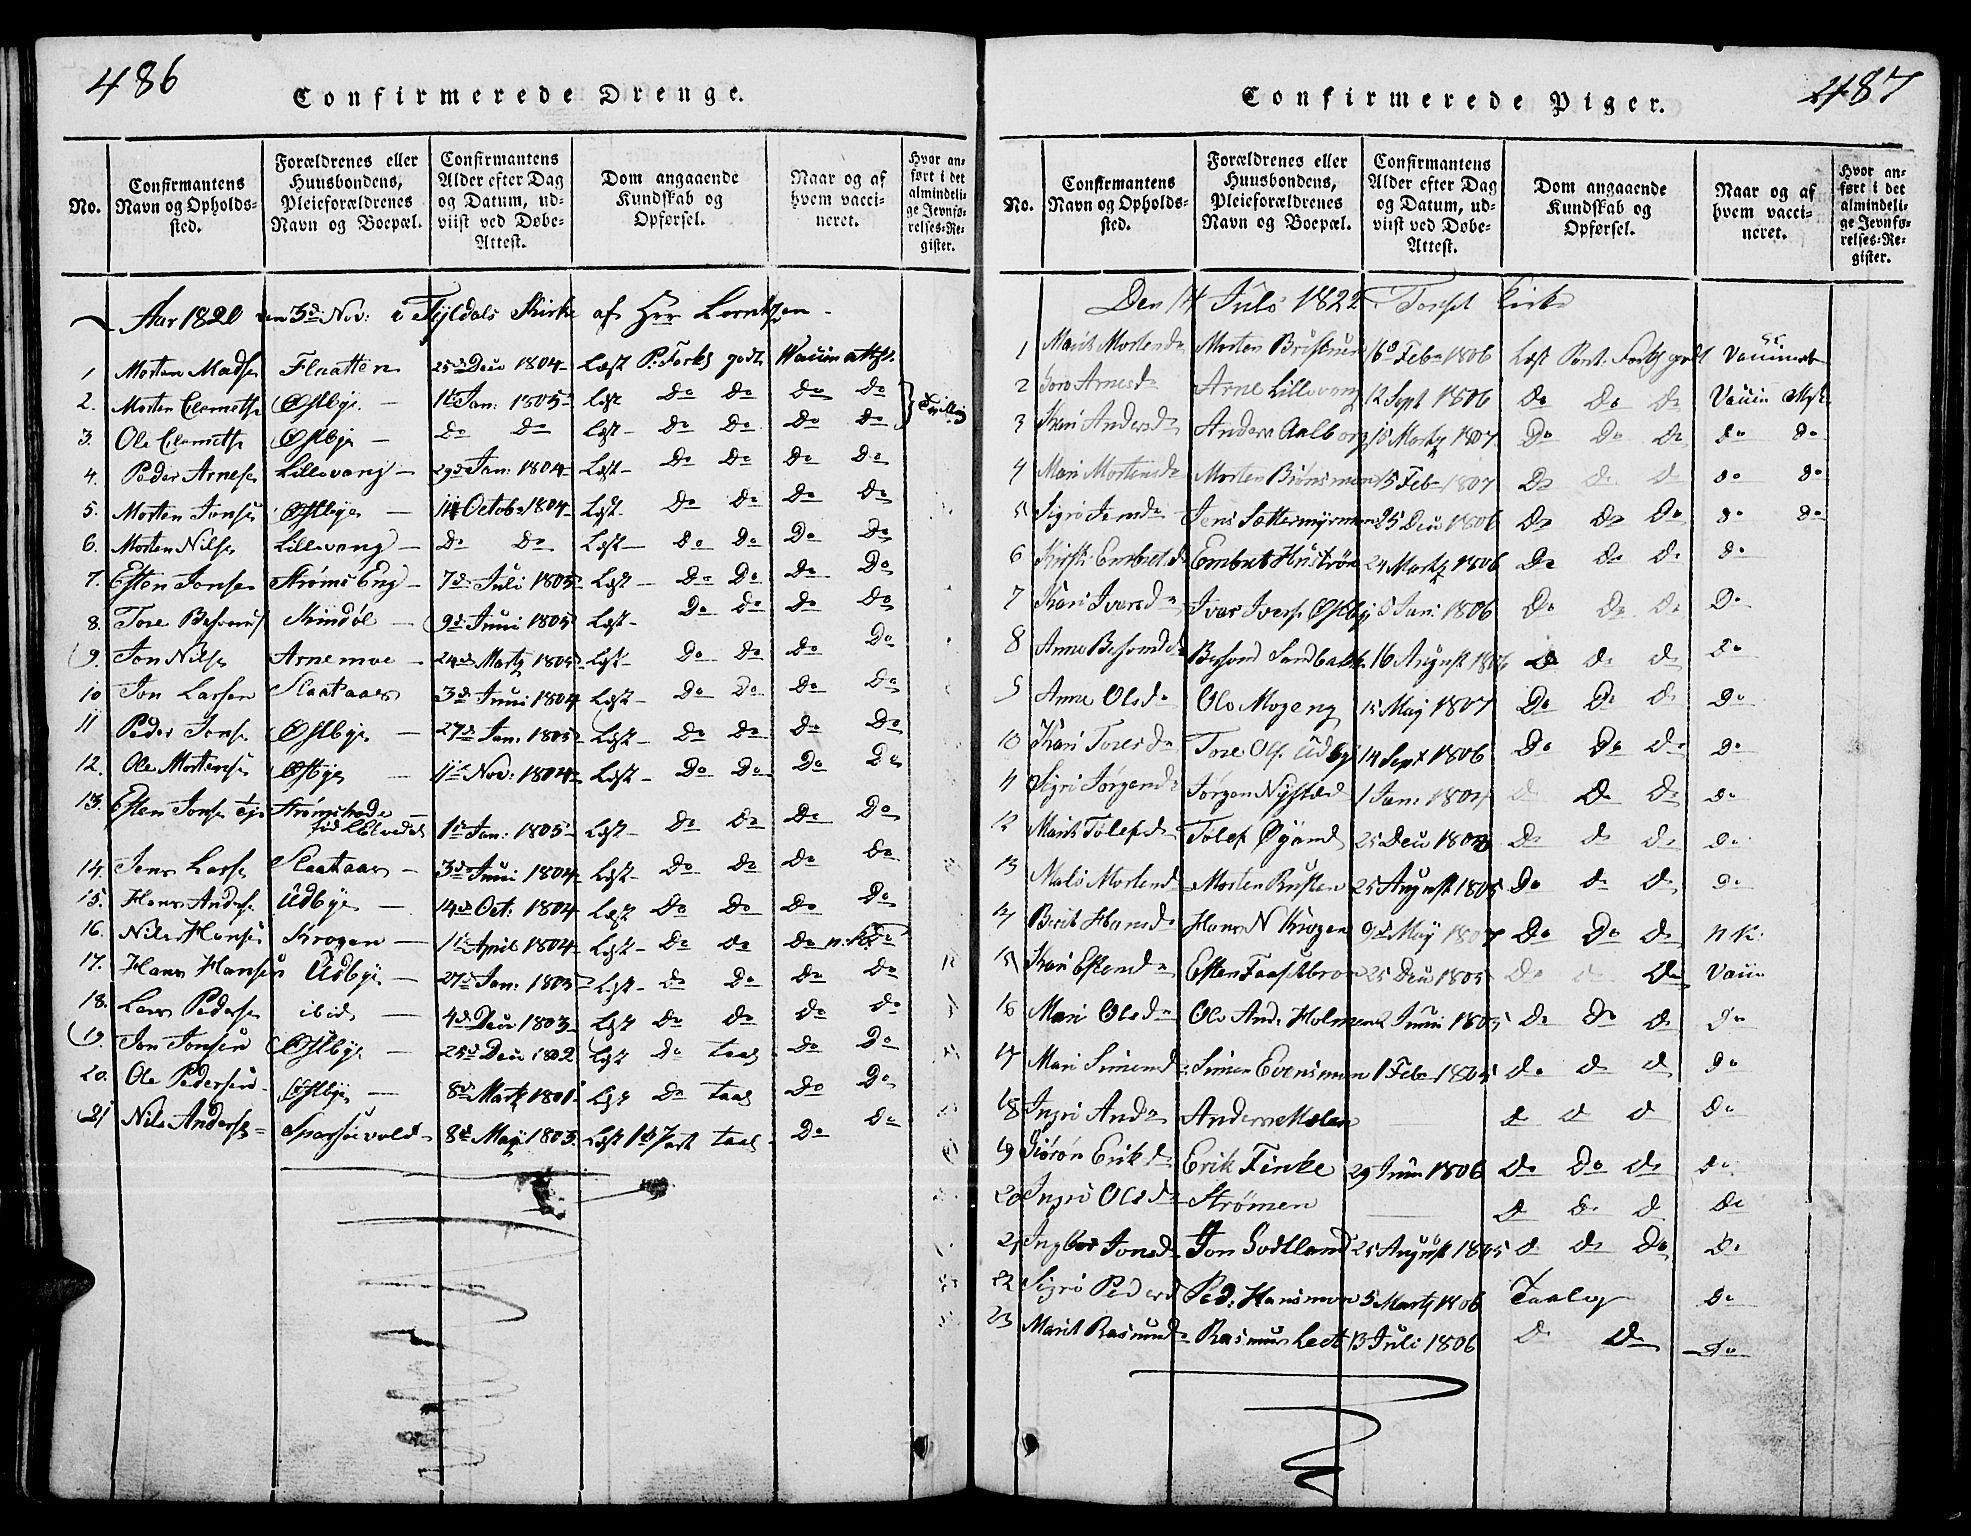 486
Confirmerede Drenge.
No. Confirmantens Navn og Opholds-sted. Forældrenes eller Huusbondens, Pleieforældrenes Navn og Boepæl. Confirmantens Alder efter Dag og Datum, ud-viist ved Døbe-Attest. Dom angaaende Kundskab og Opførsel. Naar og af hvem vacci-neret. Hvor an-ført i det almindeli-ge Jevnfø-relses-Re-gister.
Aar 1820 den 3d Nov: i Tyldals Kirke af Hrr Lorntzen
1 Morten Madse Flaatten 25d Decr 1804 Læst P. Forkl godt Vaccin attest.
2. Morten Clemetse Østbye 1t Jan: 1805 Læst Do Do Do Do
3. Ole Clemetse Østbye Do Do Læst Do Do Do Do
4. Peder Arnese Lillevang 29d Jan: 1804 Læst Do Do Do Do
5. Morten Jonse Østbye 14 Octob 1804 Læst Do Do Do Do
6. Morten Nilse Lillevang Do Do Læst Do Do Do Do
7. Esten Jonsen Strøms Eng 7d Juli 1805 Læst Do Do Do Do
8. Tore 9d Juni 1805 Læst Do Do Do Do
9. Jon Nilse Arnemoe 24d Martz 1805 Læst Do Do Do Do
10 Jon Larsen Slaataaes 3d Juni 1804 Læst Do Do Do Do
11 Peder Jonse Østbye 27d Jan: 1805 Læst Do Do Do Do
12. Ole Mortense Østbye 11t Nov: 1804 Læst Do Do Do Do
13. Esten Jonse 1t Jan: 1805 Læst Do Do Do Do
14. Jens Larse Slaataaes 3d Juni 1804 Læst Do Do Do Do
15. Hans Anderse Udbye 14d Oct: 1804 Læst Do Do Do Do
16. Nils Hansen Krogen 1t April 1804 Læst Do Do Do n. K. Do
17. Hans Hansen Udbye 27d Jan: 1805 Læst Do Do Do Do
18. Lars Pederse ibid 4d Decr 1803 Læst Do Do Do Do
19. Jon Jonsen Østbye 25d Decr 1802 Læst Do taal Do Do
20. Ole Pedersen Østbye 8d Martz 1801 Læst Do taal Do Do
21 Nils Anderse 8d Maij 1803 Læst 1d Part taal Do Do
487
Confirmerede Piger.
No. Confirmantens Navn og Opholds-sted. Forældrenes eller Huusbondens, Pleieforældrenes Navn og Boepæl. Confirmantens Alder efter Dag og Datum, ud-viist ved Døbe-Attest. Dom angaaende Kundskab og Opførsel. Naar og af hvem vacci-neret. Hvor an-ført i det almindeli-ge Jevnfø-relses-Re-gister.
Den 14 Juli 1822 Tonset Kirke
1 Marit Mortensd Morten 16d Feb 1806 Læst Pont. Forkl godt
2 Goro Arnesd Arne Lillevang 12 Sept 1806 Do Do Do Vaccin
3 Kari Andersd Anders Aalborg 10 Martz 1807 Do Do Do Do Do
4 Mari Mortensd Morten Biönsmoen 15 Feb 1807 Do Do Do Do Do
5 Sigri Jensd Jens Sættermyrmoen 25 Decr 1806 Do Do Do Do Do
6 Kirsti Embretsd Embret Hüströe 24 Martz 1806 Do Do Do Do
7 Kari Iversd Iver Iverse Østbye 5 Jan: 1806 Do Do Do Do
8 Anne Besensd Sandbakke 16 August 1806 Do Do Do Do
9 Anne Olsd Ole Mogeng 15 Maij 1807 Do Do Do Do
10 Kari Toresd Tore Ols. Udbye 14 Sept 1806 Do Do Do Do
11 Sigri Jørgensd Jørgen Nystad 1 Jan: 1807 Do Do Do Do
12 Marit Tolefsd Tolef Øyand 25 Decr Do Do Do Do
13 Morten Rusten 25 August 1805 Do Do Do Do
14 Berit Hansd Hans N Krogen 9d Maij 1807 Do Do Do n K.
15 Kari Estensd Esten Faasetbroe 25 Decr 1805 Do Do Do Vacc
16 Mari Olsd Ole And: Holmen 2 Juni 1805 Do Do Do Do
17 Mari Simensd Simen Evensmoen 1 Feb 1805 Do Do Do Do
18 Ingri Andd Anders Moen Do Do Do Do
19 Giøron Eriksd Erik Finke 29 Juni 1806 Do Do Do Do
20 Ingri Olsd Strømen Do Do Do Do
21 Ingbor Jonsd Jon Godtland 25 August 1805 Do Do Do Do
22 Sigri Pedersd Ped: Hansmoen 5 Martz 1806 Taalig Do
23 Marit Rasmusd Rasmus 13 Juli 1806 Do Do Do